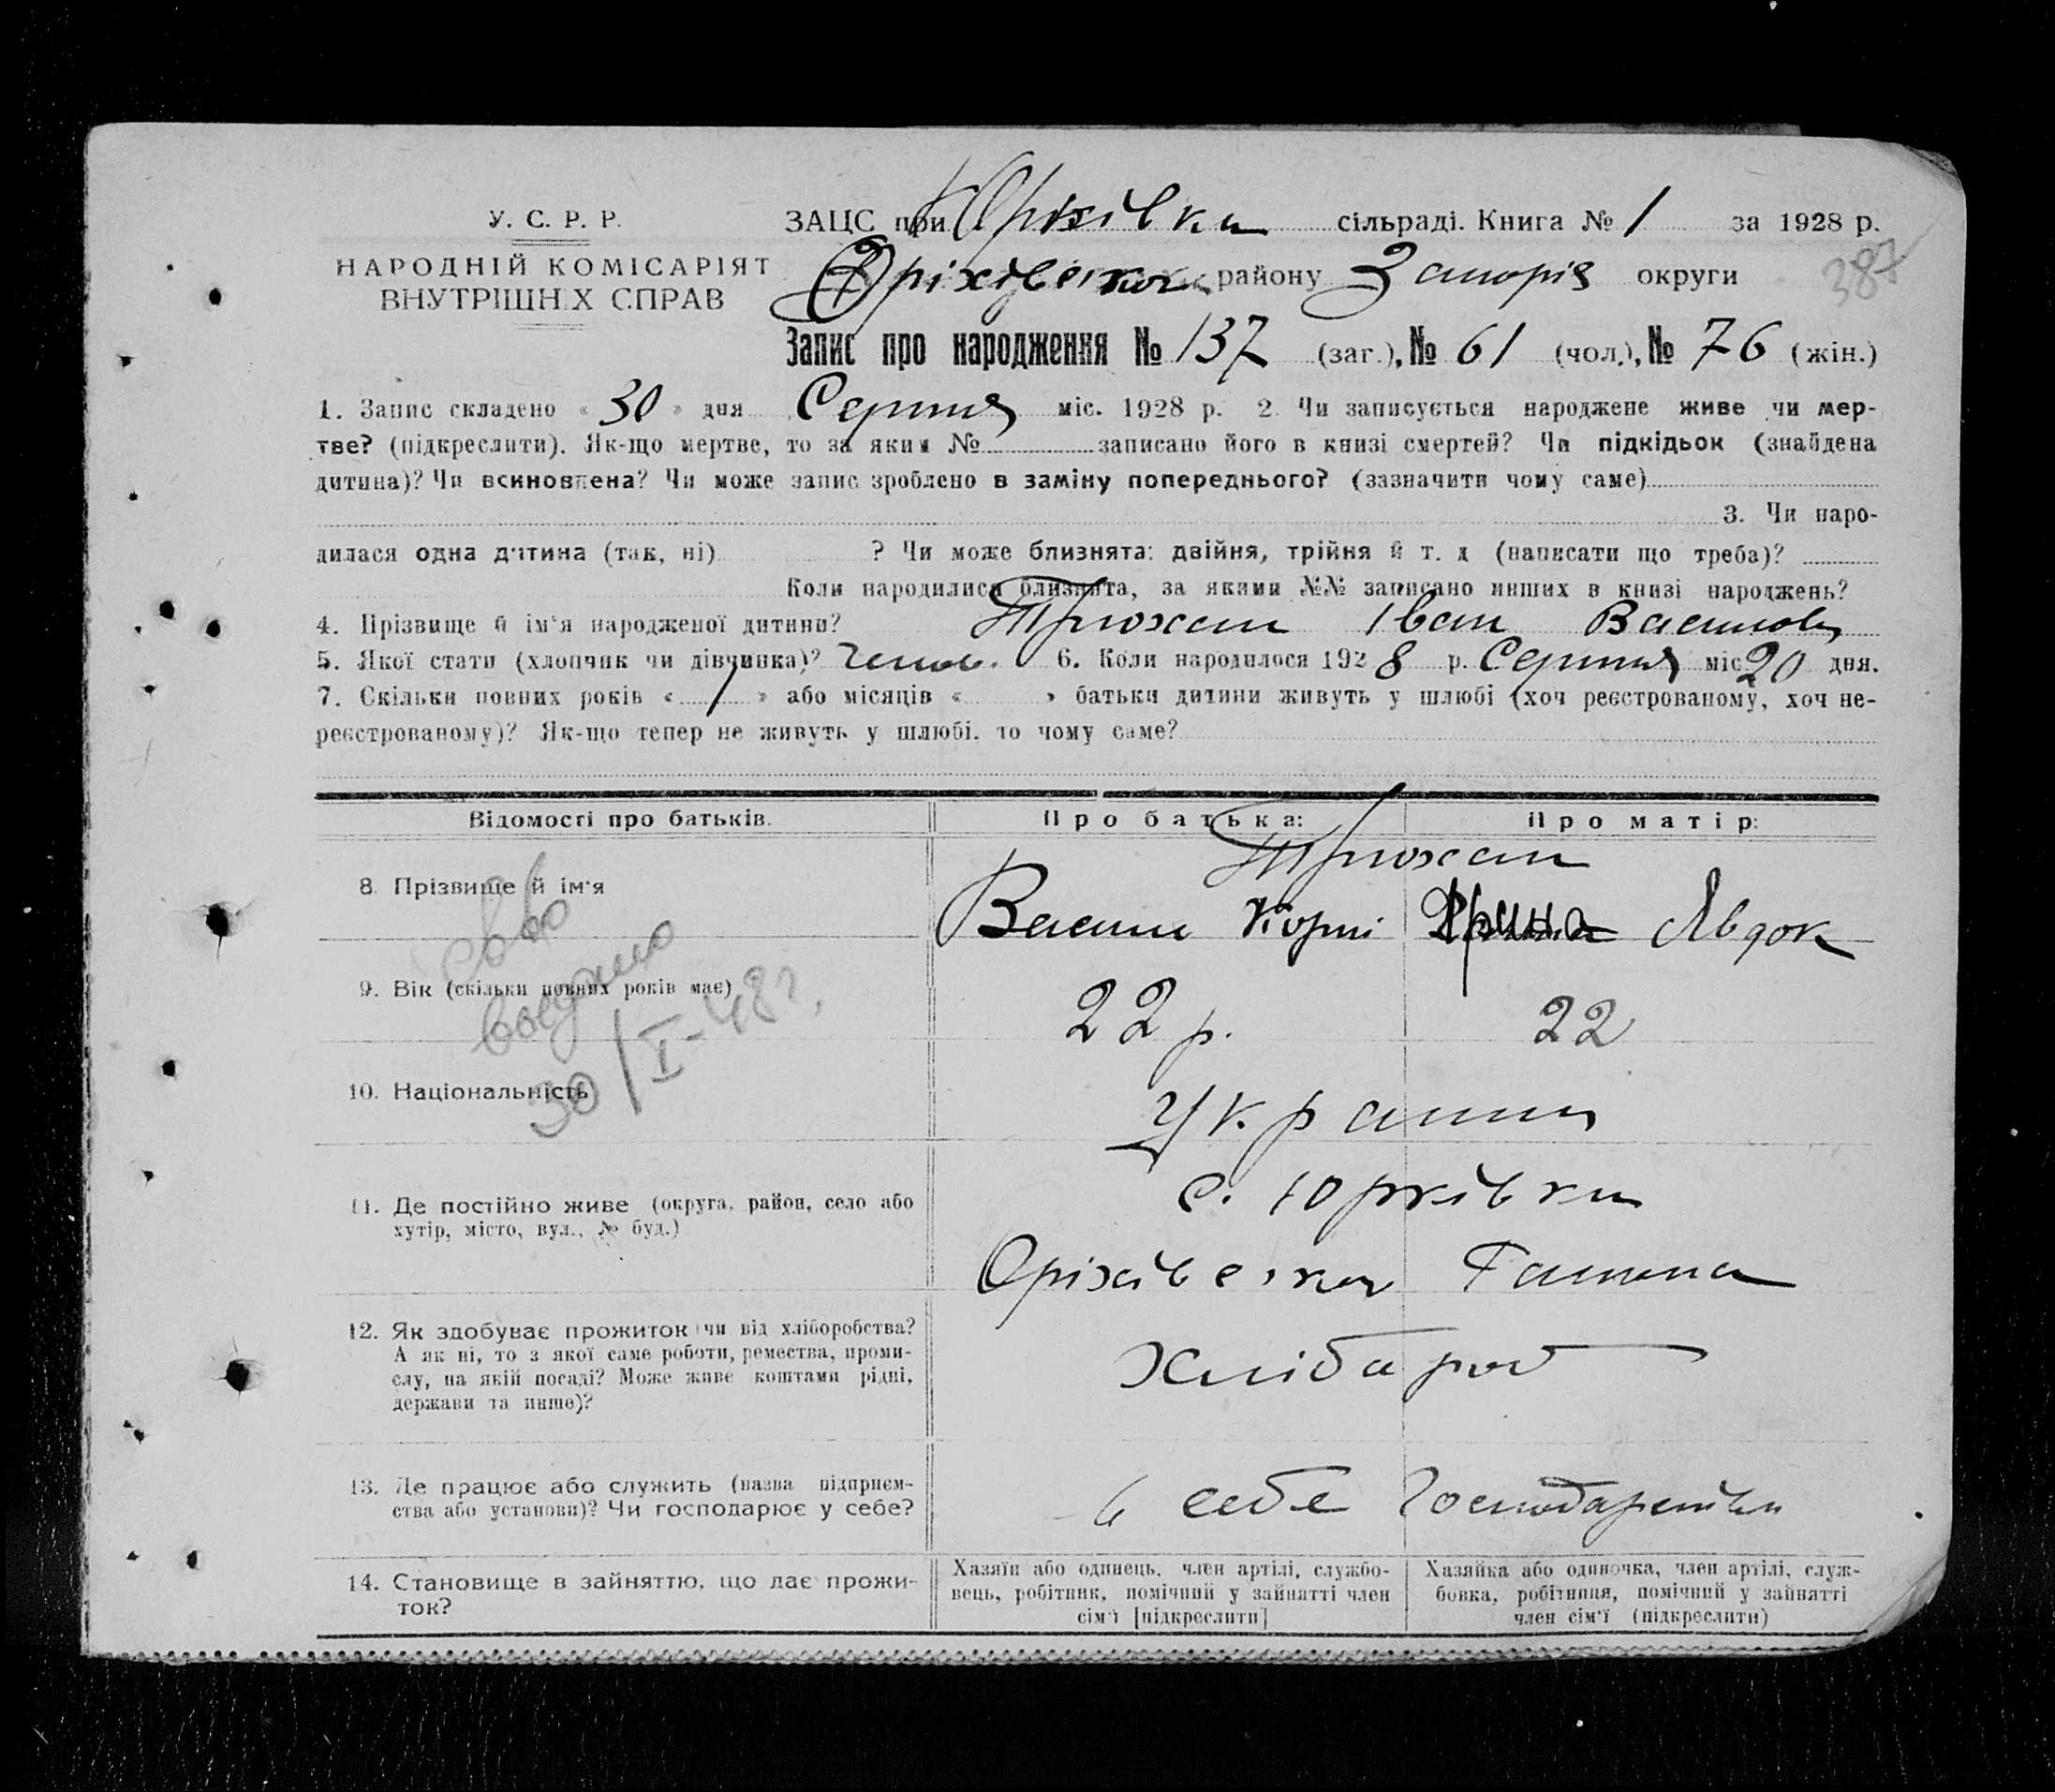 У. С. Р. Р.
НАРОДНІЙ КОМІСАРІЯТ
ВНУТРІШНІХ СПРАВ
ЗАЦС при Юрківки сільраді. Книга № 1 за 1928 р.
Оріхівськ району Запоріз округи
387
Запис про народження № 137 (заг.), № 61 (чол.), № 76 (жін.)
1. Запис складено « 30 » дня Серпня міс. 1928 р. 2. Чи записується народжене живе чи мер-
тве? (підкреслити). Як-що мертве, то за яким № записано його в книзі смертей? Чи підкідьок (знайдена
дитина)? Чи всиновлена? Чи може запис зроблено в заміну попереднього? (зазначити чому саме)
3. Чи наро-
дилася одна дитина (так, ні) ? Чи може близнята: двійня, трійня й т. д (написати що треба)?
Коли народилися близнята, за якими №№ записано инших в книзі народжень?
4. Прізвище й ім'я народженої дитини? Трюхан Іван Васильов
5. Якої стати (хлопчик чи дівчинка)? 6. Коли народилося 1928 р. Серпня міс 20 дня.
7. Скільки повних років « 1 » або місяців « » батьки дитини живуть у шлюбі (хоч реєстрованому, хоч не-
реєстрованому)? Як-що тепер не живуть у шлюбі, то чому саме?
Відомості про батьків.
Про батька:
Про матір:
Трюхан
8. Прізвище й ім'я
Васил Корні
Явдок
9. Вік (скільки повних років має)
22 р.
22
выдано
30/I-48 г.
10. Національність
Україн
11. Де постійно живе (округа, район, село або
хутір, місто, вул., № буд.)
с. Юрківки
Оріхівськ
12. Як здобуває прожиток (чи від хліборобства?
А як ні, то з якої саме роботи, ремества, проми-
слу, на якій посаді? Може живе коштами рідні,
держави та инше)?
Хлібароб
13. Де працює або служить (назва підприєм-
ства або установи)? Чи господарює у себе?
в себе Господарстві
14. Становище в зайняттю, що дає прожи-
ток?
Хазяїн або одинець, член артілі, службо-
вець, робітник, помічний у зайнятті член
сім'ї [підкреслити]
Хазяйка або одиночка, член артілі, служ-
бовка, робітниця, помічний у зайнятті
член сім'ї (підкреслити)